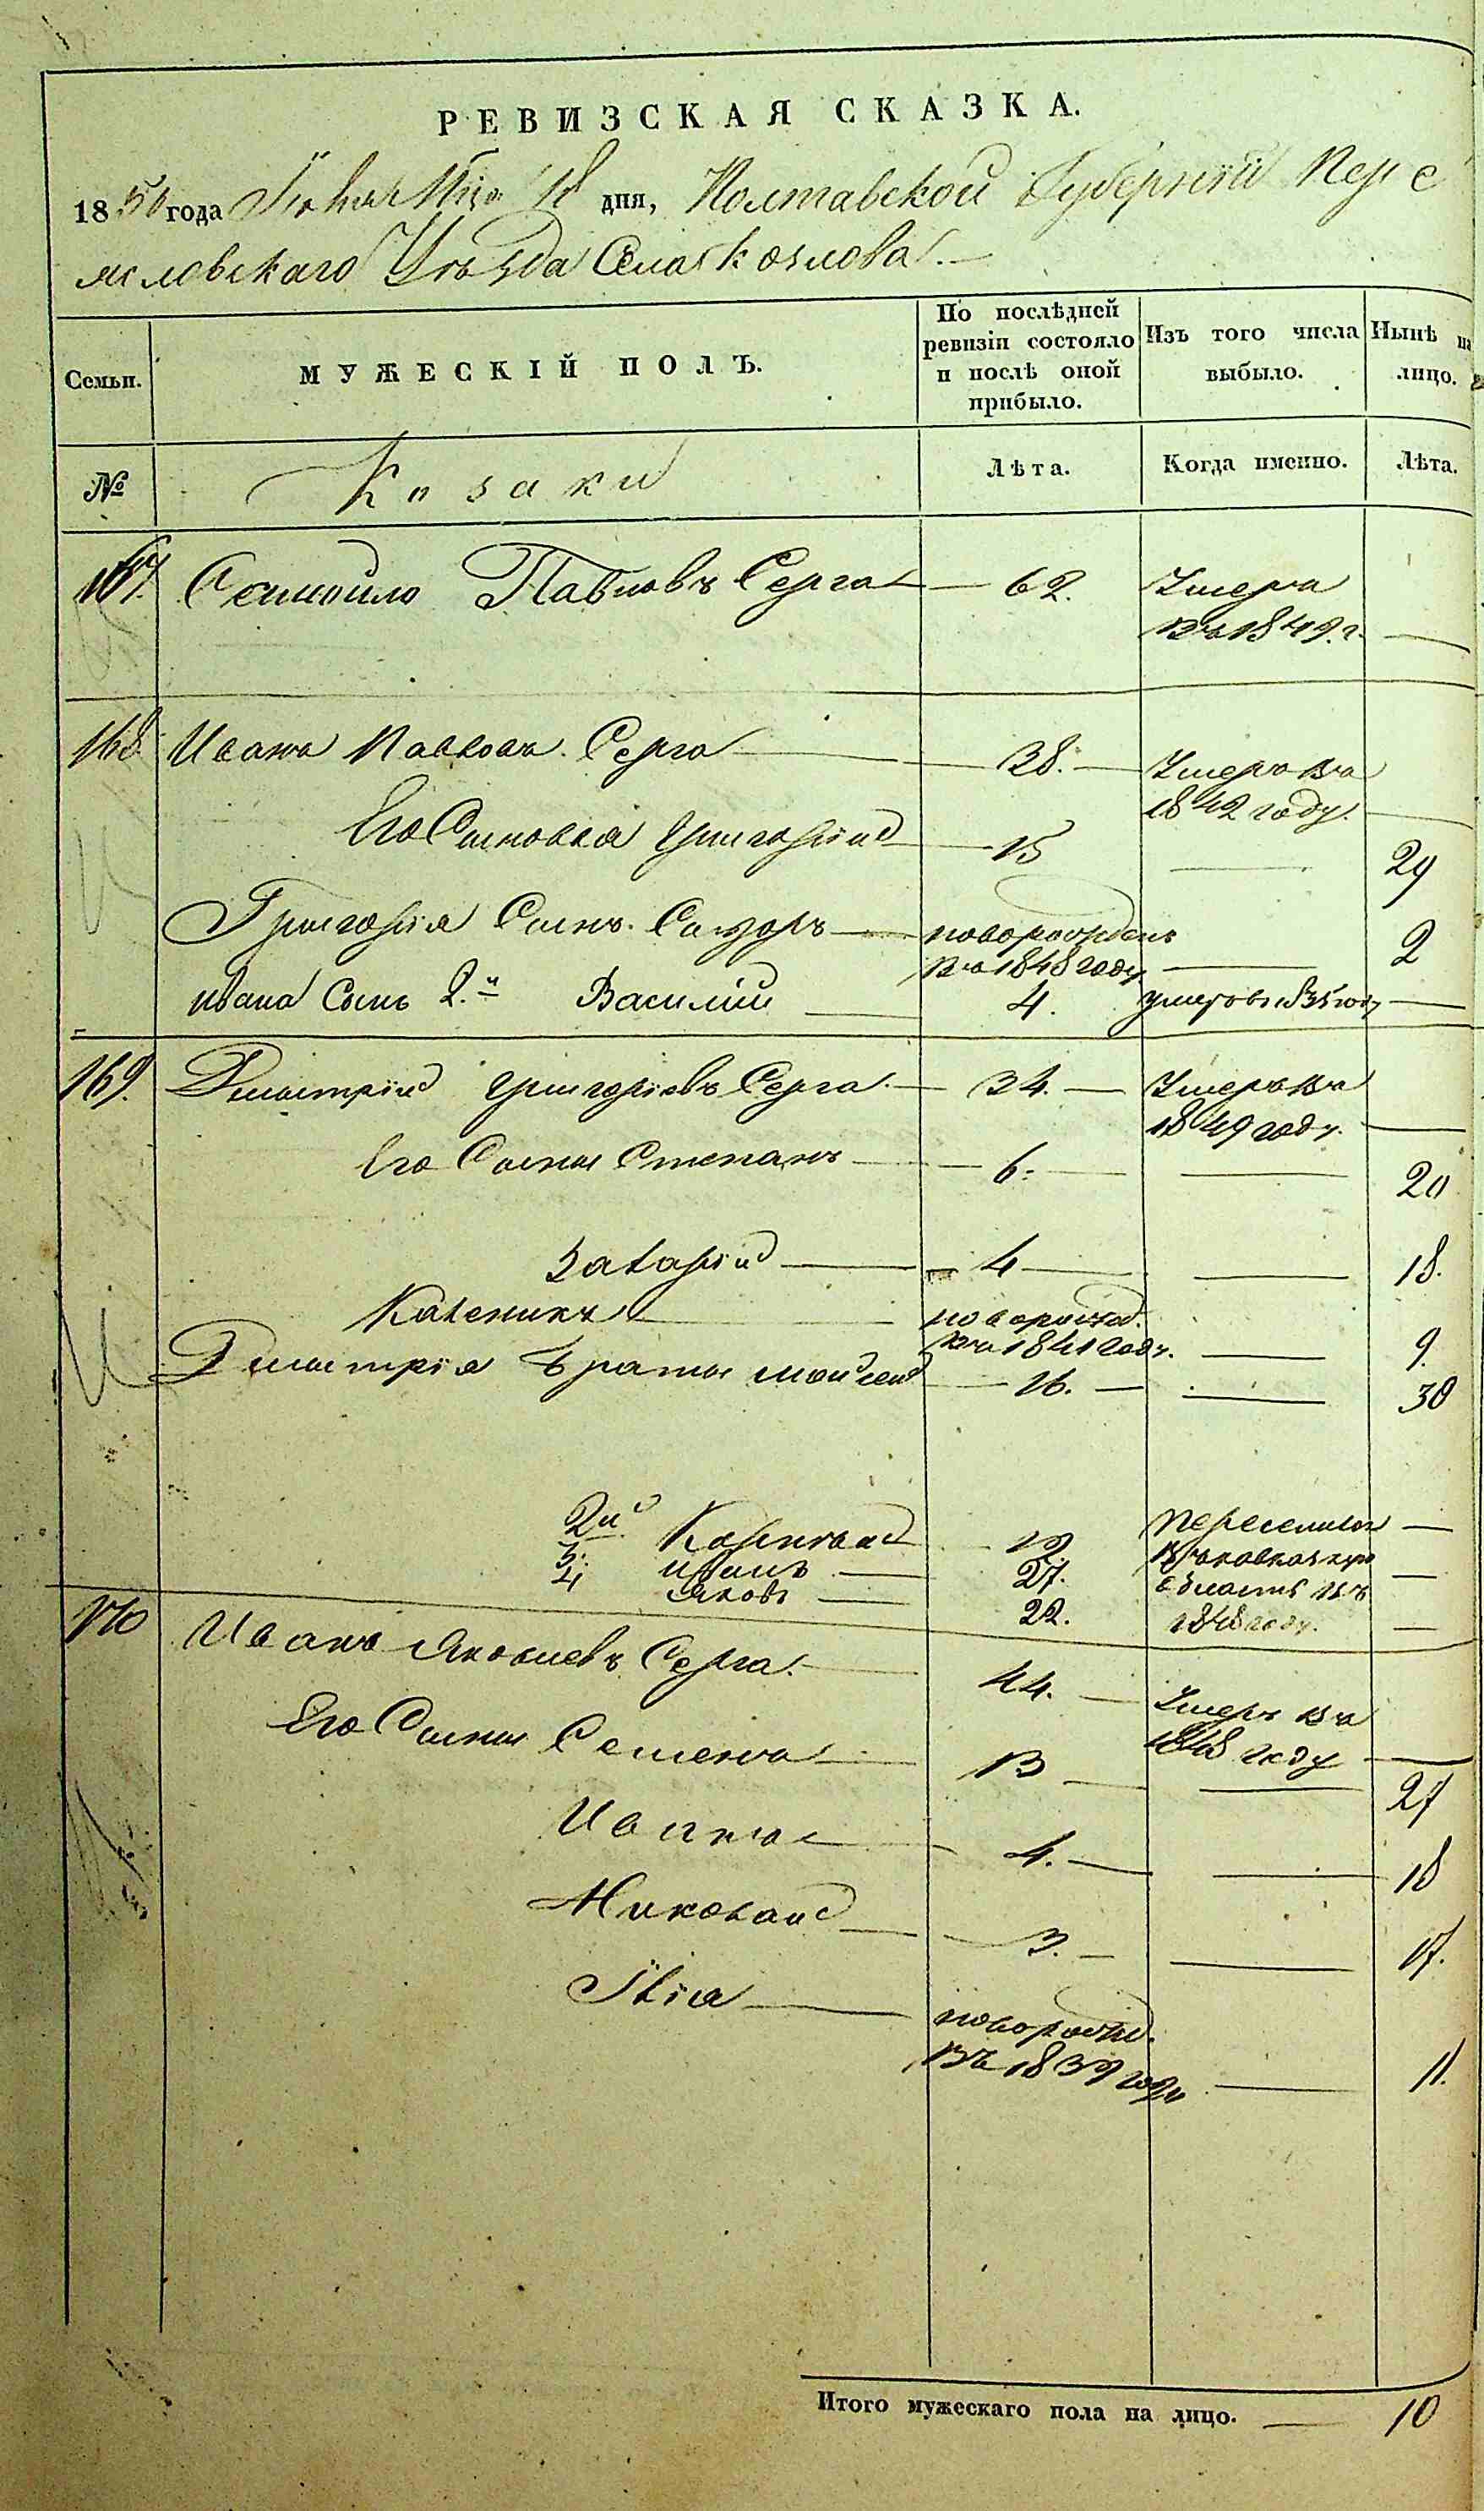 РЕВИЗСКАЯ СКАЗКА.
1850 года дня, Полтавской Губернiи Пере
яславскаго Уѣзда Села Козлова.
Семьи.
МУЖЕСКІЙ ПОЛЪ.
По послѣдней ревизіи состояло и послѣ оной прибыло.
Изъ того числа выбыло.
Нынѣ на лицо.
№ Козаки Лѣта. Когда именно. Лѣта.
167. Самойло Павловъ Серга 62. Умеръ
въ 1849 г.
168. Иванъ Павловъ Серга 38. Умеръ въ
1842 году.
Его Сыновья Григорій 15 29
Григорія Сынъ новорожденъ 2
въ 1848 году
Ивана Сынъ 2й Василій 4. умеръ въ 1835 году
169. Дмитрій Григоріевъ Серга 34. Умеръ въ
1849 году.
Его Сыны Степанъ 6. 20
Захарій 4 18.
Каленикъ новорожд.
въ 1841 году. 9.
Дмитрія браты Мойсей 16. 30
2й Корнѣй 12 переселились
3. Иванъ 27. въ кавказскую
4 Яковъ 22. область въ
1848 году.
170 Иванъ Яковлевъ Серга. 44. Умеръ въ
1848 году
Его Сыны Семенъ 13 27
Иванъ 4. 18
Николай 3. 17.
Илія новорожд.
въ 1839 году 11.
Итого мужескаго пола на лицо. 10